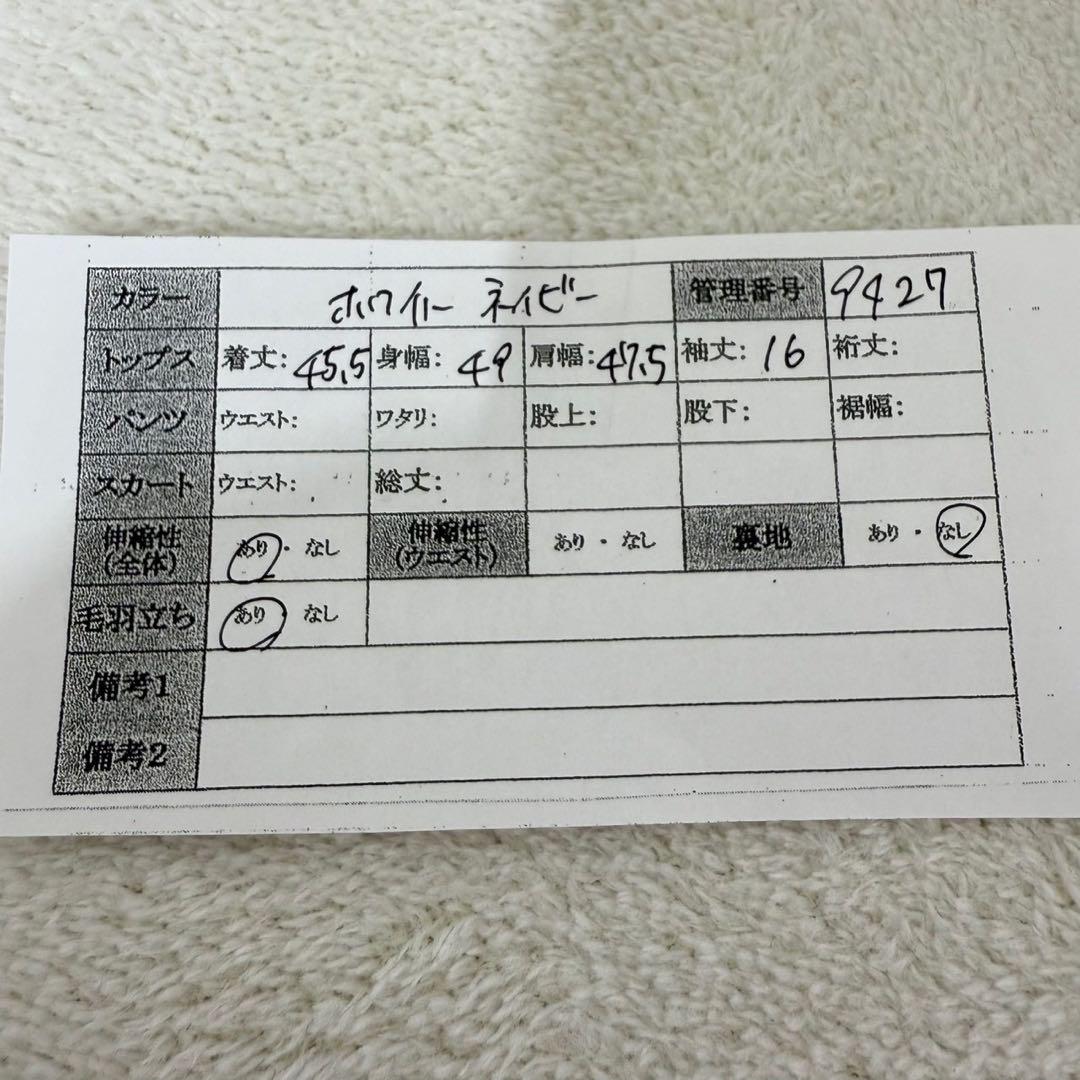 カラー ホワイト ネイビー 管理番号 9427
トップス 着丈: 45.5 身幅: 49 肩幅: 47.5 袖丈: 16 裄丈:
パンツ ウエスト: ワタリ: 股上: 股下: 裾幅:
スカート ウエスト: 総丈:
伸縮性(全体) あり・なし 伸縮性(ウエスト) あり・なし 裏地 あり・なし
毛羽立ち あり なし
備考1
備考2